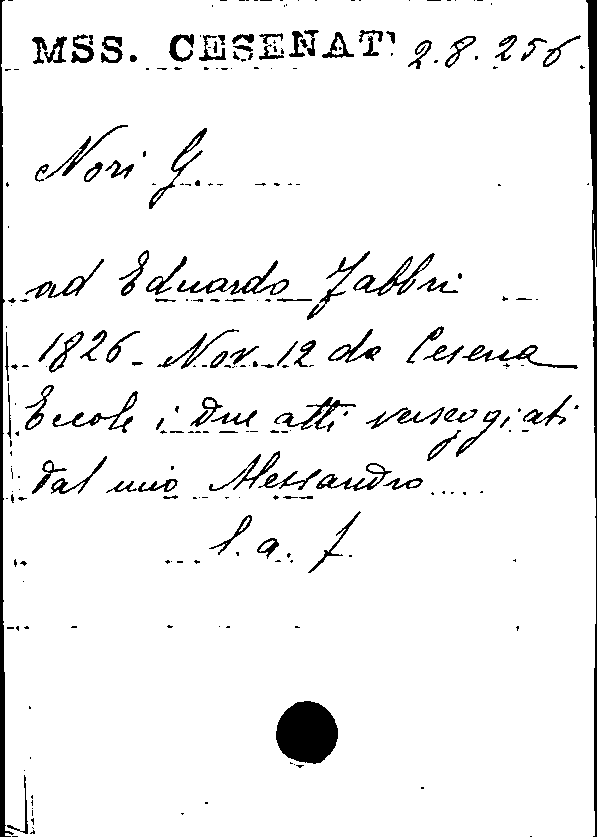 MSS. CESENAT 2.8.256
Nori G.
ad Eduardo Fabbri
1826 - Nov. 12 da Cesena
Eccole i due atti verseggiati
dal mio Alessandro
l. a. f.